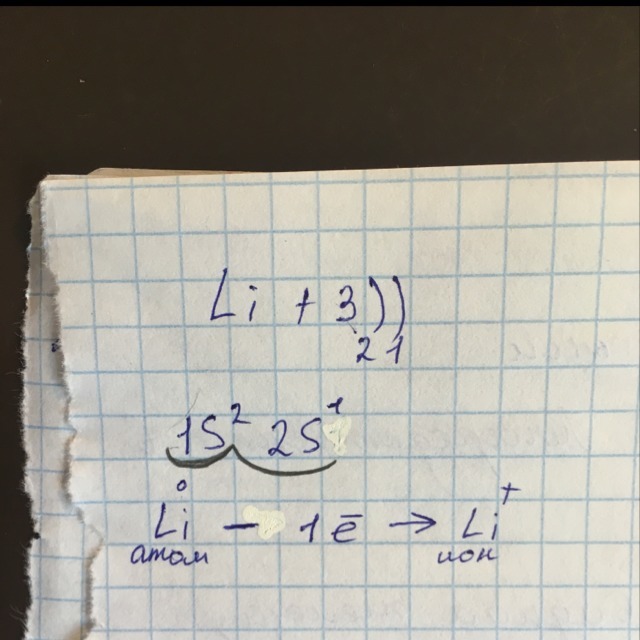 Li + 3))
2 1
1S² 2S¹
Li⁰ — 1ē → Li⁺
атом ион